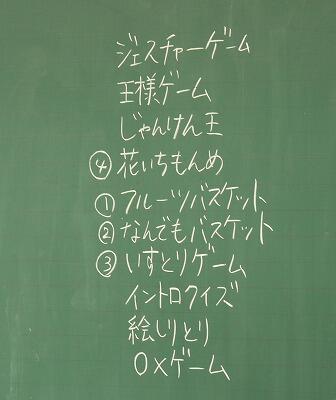 ジェスチャーゲーム
王様ゲーム
じゃんけん王
④花いちもんめ
①フルーツバスケット
②なんでもバスケット
③いすとりゲーム
イントロクイズ
絵しりとり
○×ゲーム